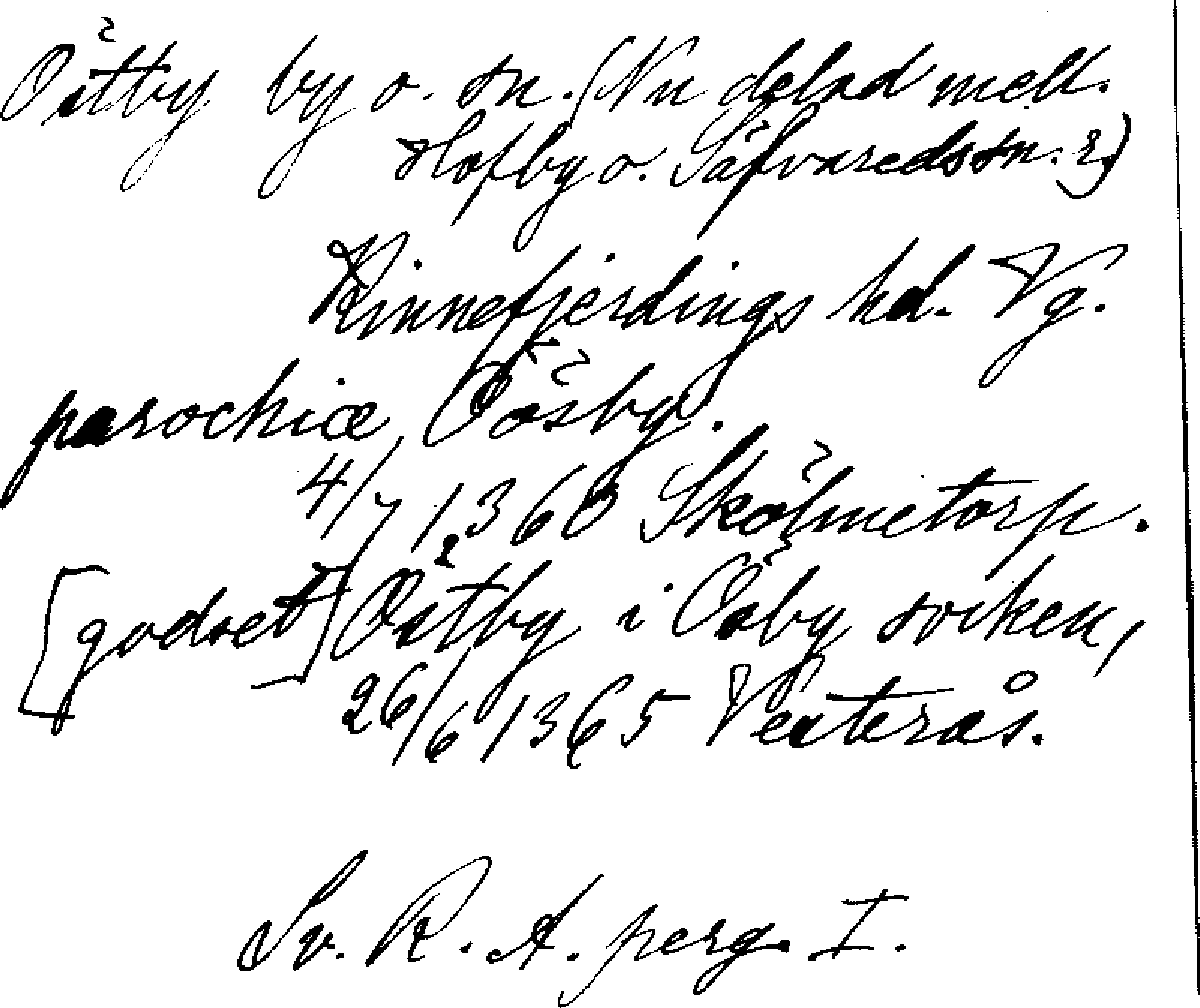 Östby by o. sn. (Nu delad mell.
Hofby o. Säfvareds sn. ?)
Kinnefjerdings hd. Vg.
parochiæ Öösby.
4/7 1360 Skölmetorp.
[godset] Östby i Ösby socken,
26/6 1365 Vesterås.
Sv. R. A. perg. I.